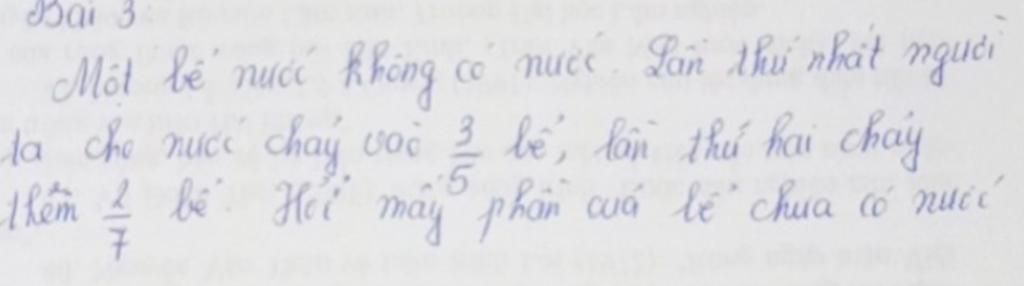 Bài 3
Một bể nước không có nước. Lần thứ nhất người
ta cho nước chảy vào 3/5 bể, lần thứ hai chảy
thêm 2/7 bể. Hỏi mấy phần của bể chưa có nước